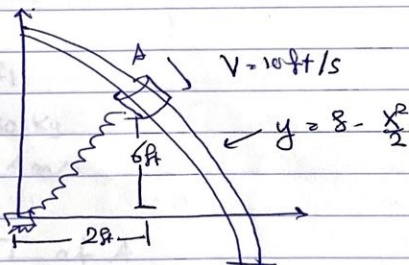 A
V = 10 ft/s
y = 8 - x²/2
6ft
2ft